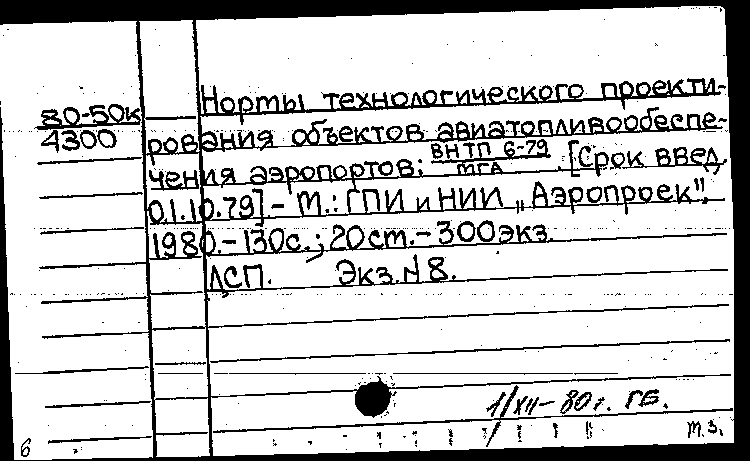 80-50к
4300
Норты технологического проекти-
рования объектов авиатопливообеспе-
чения аэропортов; ВНТП 6-79 / МГА. [Срок введ.
01.10.79] - М.: ГПИ и НИИ „Аэропроек",
1980. - 130с.; 20см. - 300экз.
ДСП. Экз. № 8.
1/XII-80г. ГБ.
6 т.з.